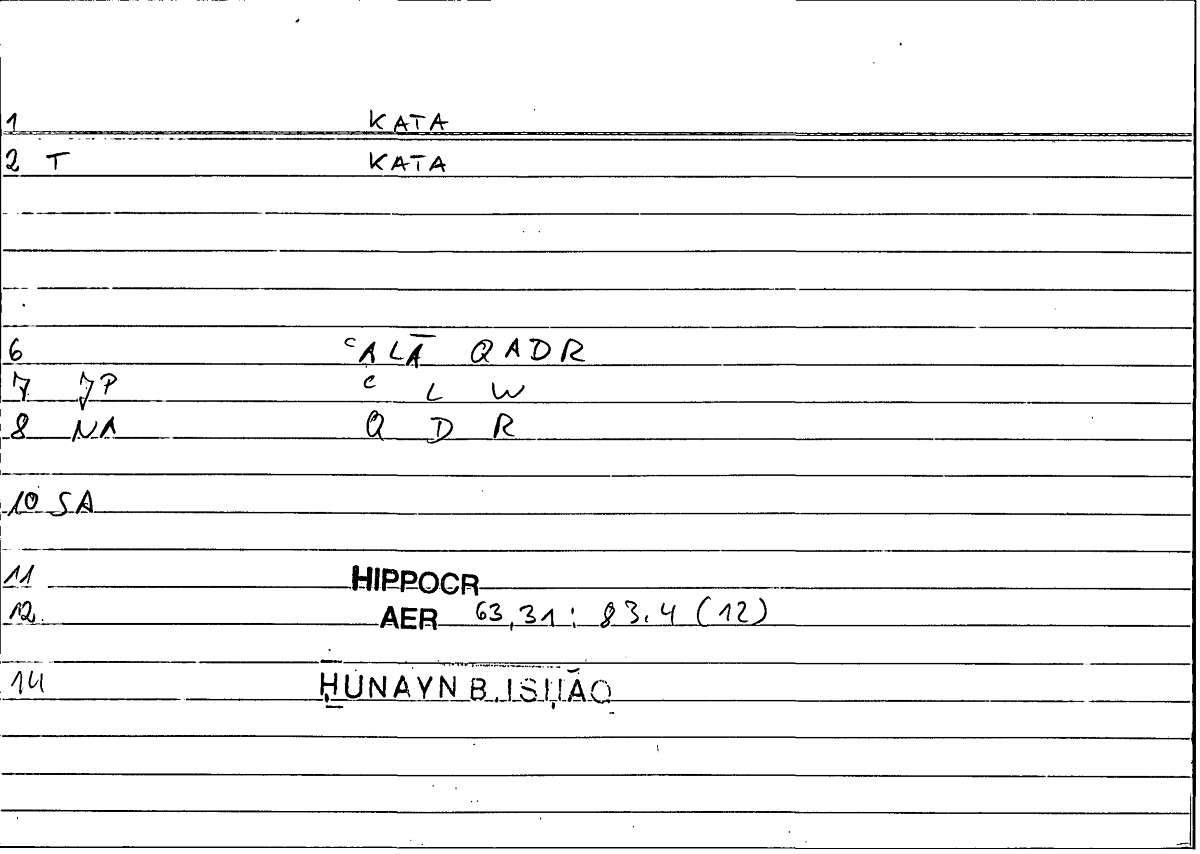 1 KATA
2 T KATA
6 ʿALĀ QADR
7 JP ʿ L W
8 NA Q D R
10 SA
11 HIPPOCR
12. AER 63,31 : 83.4 (12)
14 ḤUNAYN B. ISḤĀQ